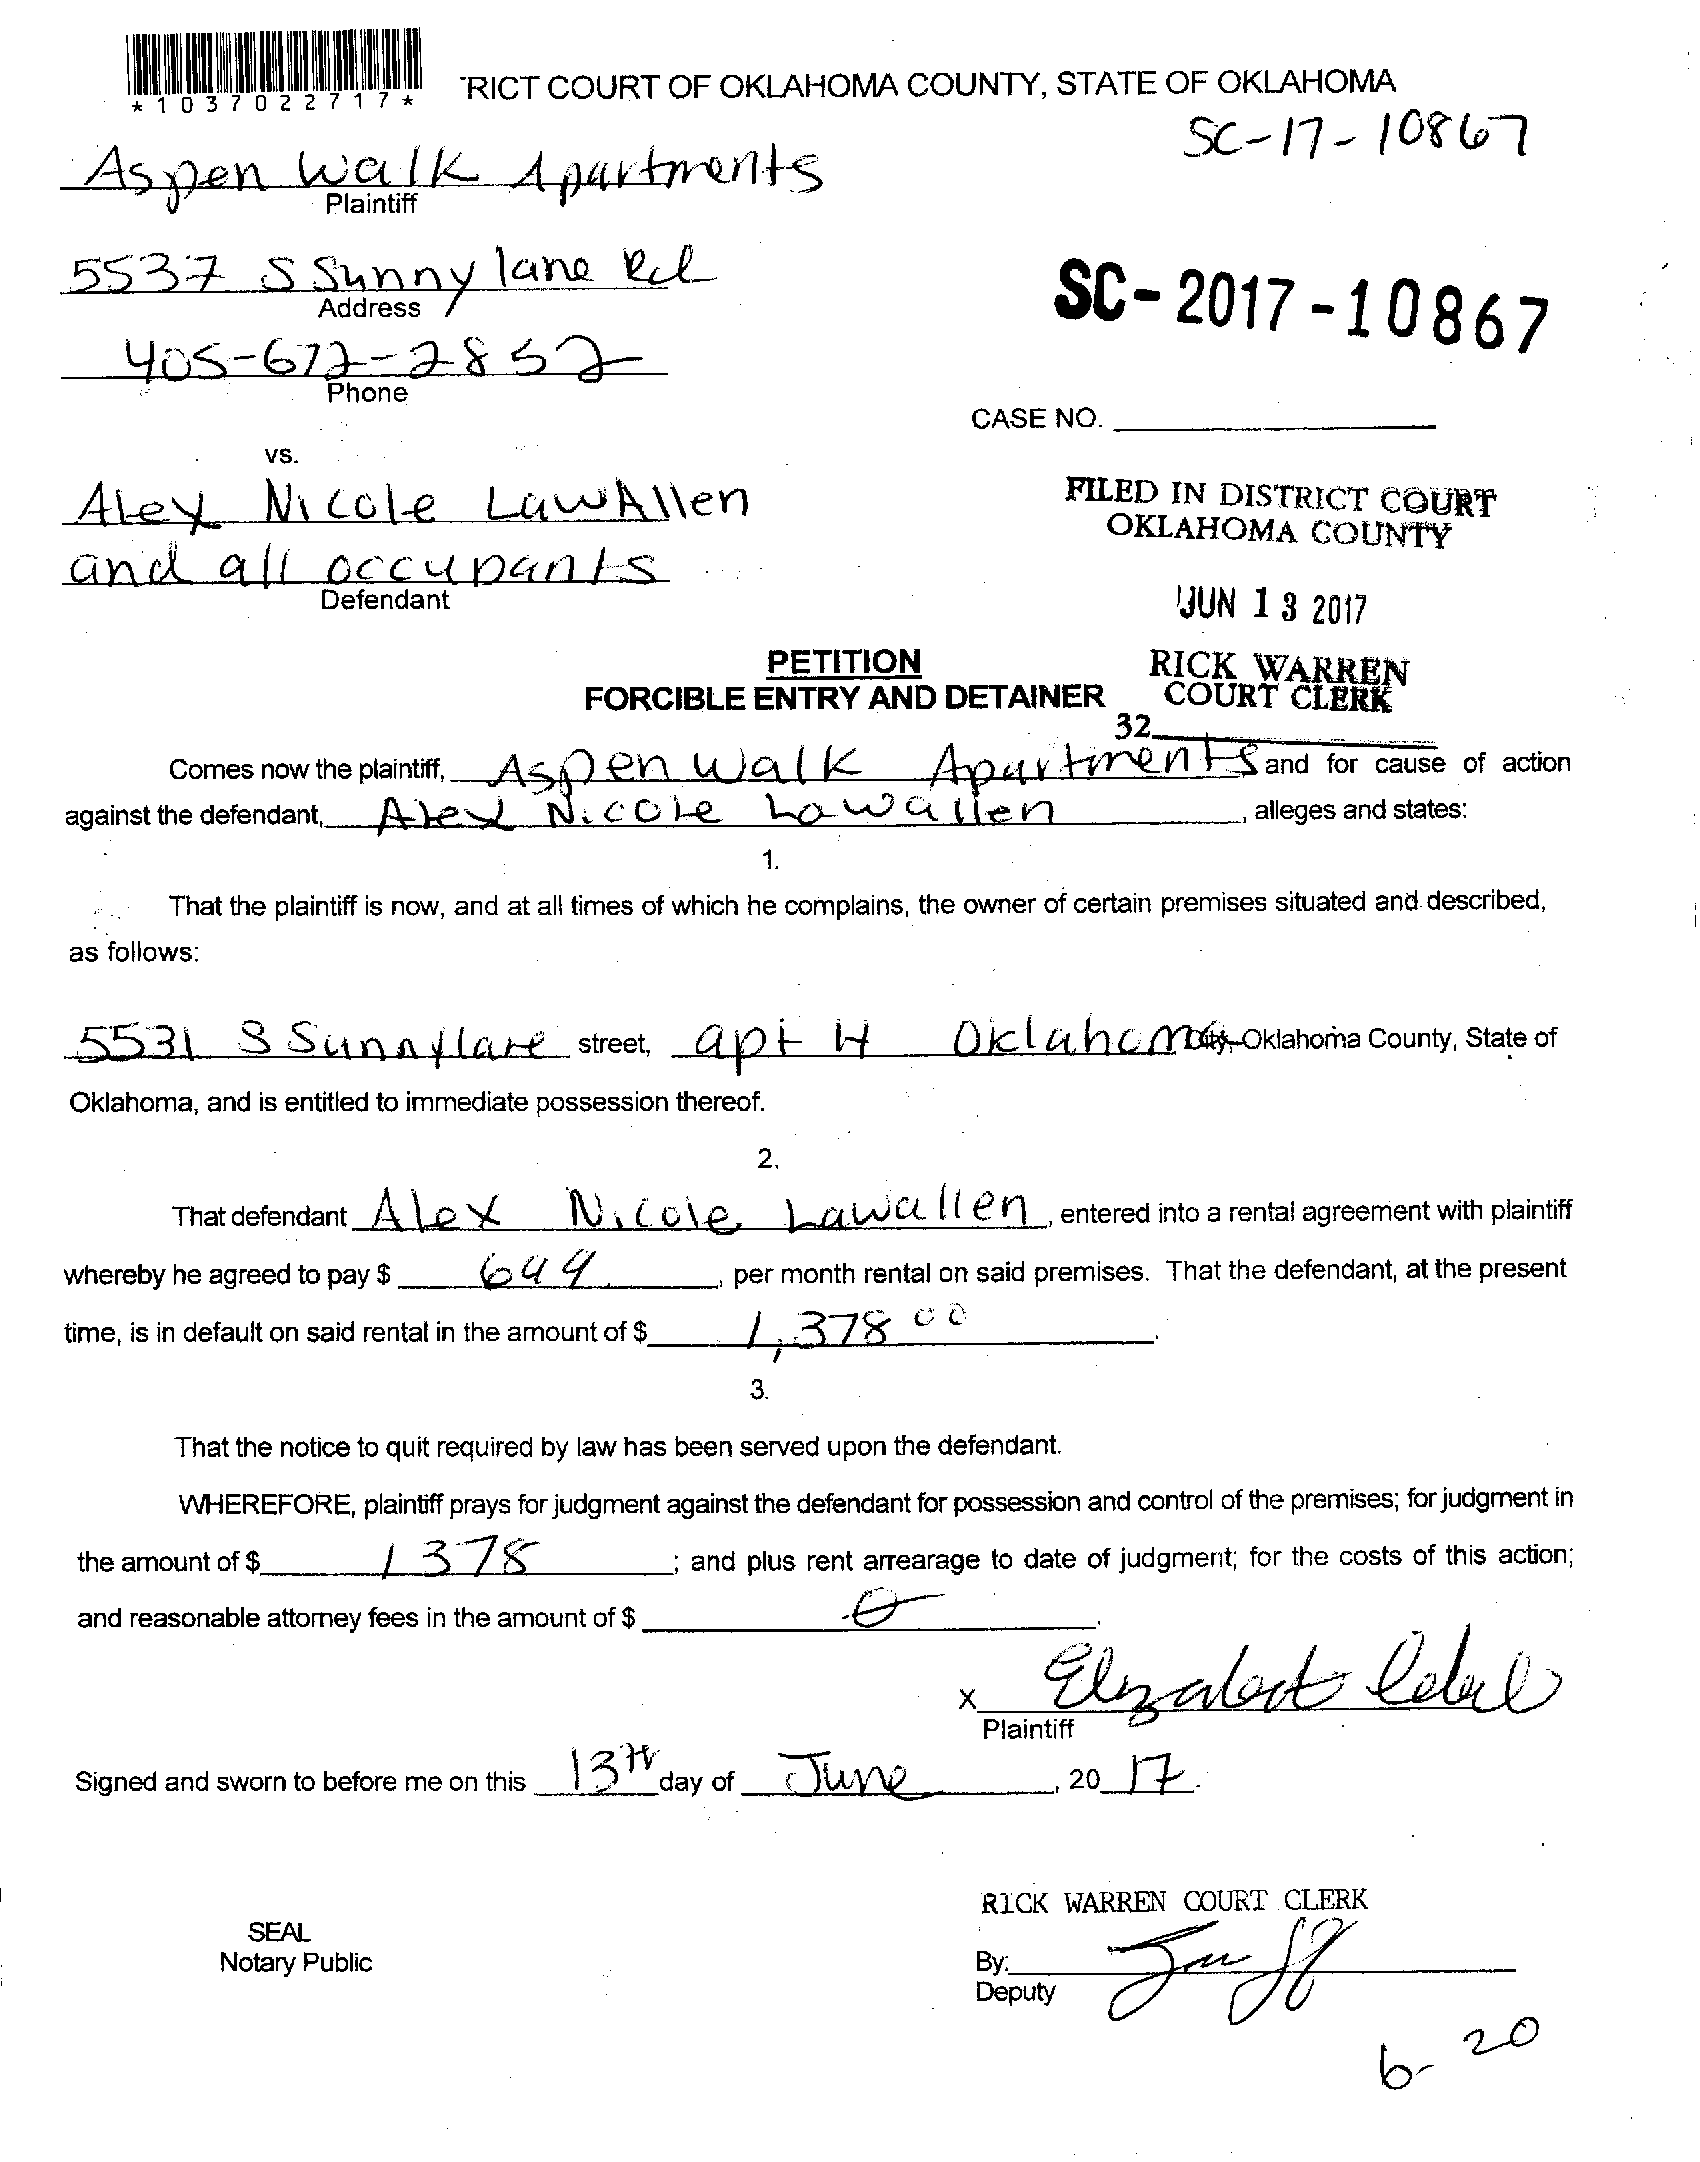 *1037022717*
TRICT COURT OF OKLAHOMA COUNTY, STATE OF OKLAHOMA
SC-17-10867
Aspen Walk Apartments
Plaintiff
5537 S Sunnylane Rd
Address
SC-2017-10867
405-672-2852
Phone
CASE NO.
vs.
Alex Nicole LawAllen
FILED IN DISTRICT COURT
OKLAHOMA COUNTY
and all occupants
Defendant
JUN 13 2017
PETITION
RICK WARREN
FORCIBLE ENTRY AND DETAINER
COURT CLERK
32
Comes now the plaintiff, Aspen Walk Apartments and for cause of action
against the defendant, Alex Nicole Lawallen, alleges and states:
1.
That the plaintiff is now, and at all times of which he complains, the owner of certain premises situated and described,
as follows:
5531 S Sunnylane street, apt H Oklahoma City, Oklahoma County, State of
Oklahoma, and is entitled to immediate possession thereof.
2.
That defendant Alex Nicole Lawallen, entered into a rental agreement with plaintiff
whereby he agreed to pay $ 649, per month rental on said premises. That the defendant, at the present
time, is in default on said rental in the amount of $ 1,378 00.
3.
That the notice to quit required by law has been served upon the defendant.
WHEREFORE, plaintiff prays for judgment against the defendant for possession and control of the premises; for judgment in
the amount of $ 1378; and plus rent arrearage to date of judgment; for the costs of this action;
and reasonable attorney fees in the amount of $ 0.
x Elizabeth
Plaintiff
Signed and sworn to before me on this 13th day of June, 20 17.
RICK WARREN COURT CLERK
SEAL
Notary Public
By:
Deputy
6-20